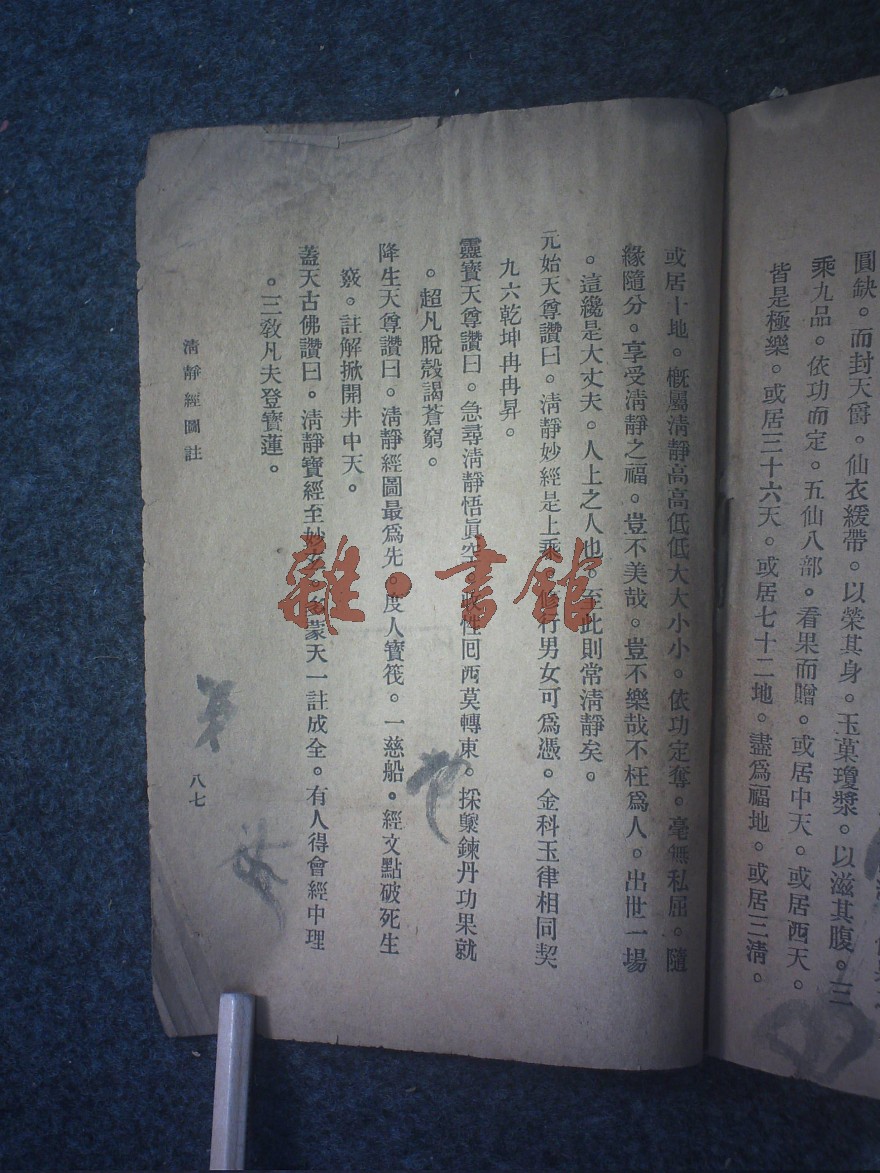 圓缺。而封天爵。仙衣緩帶。以榮其身。玉菓瓊漿。以滋其腹。三
乘九品。依功而定。五仙八部。看果而贈。或居中天。或居西天。
皆是極樂。或居三十六天。或居七十二地。盡爲福地。或居三淸。
或居十地。槪屬淸靜高高低低大大小小。依功定奪。毫無私屈。隨
緣隨分。享受淸靜之福。豈不美哉。豈不樂哉不枉爲人。出世一場
。這纔是大丈夫。人上之人也。至此則常淸靜矣。
元始天尊讚曰。淸靜妙經是上乘 行男女可爲憑。金科玉律相同契
九六乾坤冉冉昇。
靈寶天尊讚曰。急尋淸靜悟眞空 收性囘西莫轉東。採藥鍊丹功果就
。超凡脫殼謁蒼穹。
降生天尊讚曰。淸靜經圖最爲先。度人寶筏。一慈船。經文點破死生
竅。註解掀開井中天。
蓋天古佛讚曰。淸靜寶經至妙玄。多蒙天一註成全。有人得會經中理
。三敎凡夫登寶蓮。
淸靜經圖註
八七
雜·書館